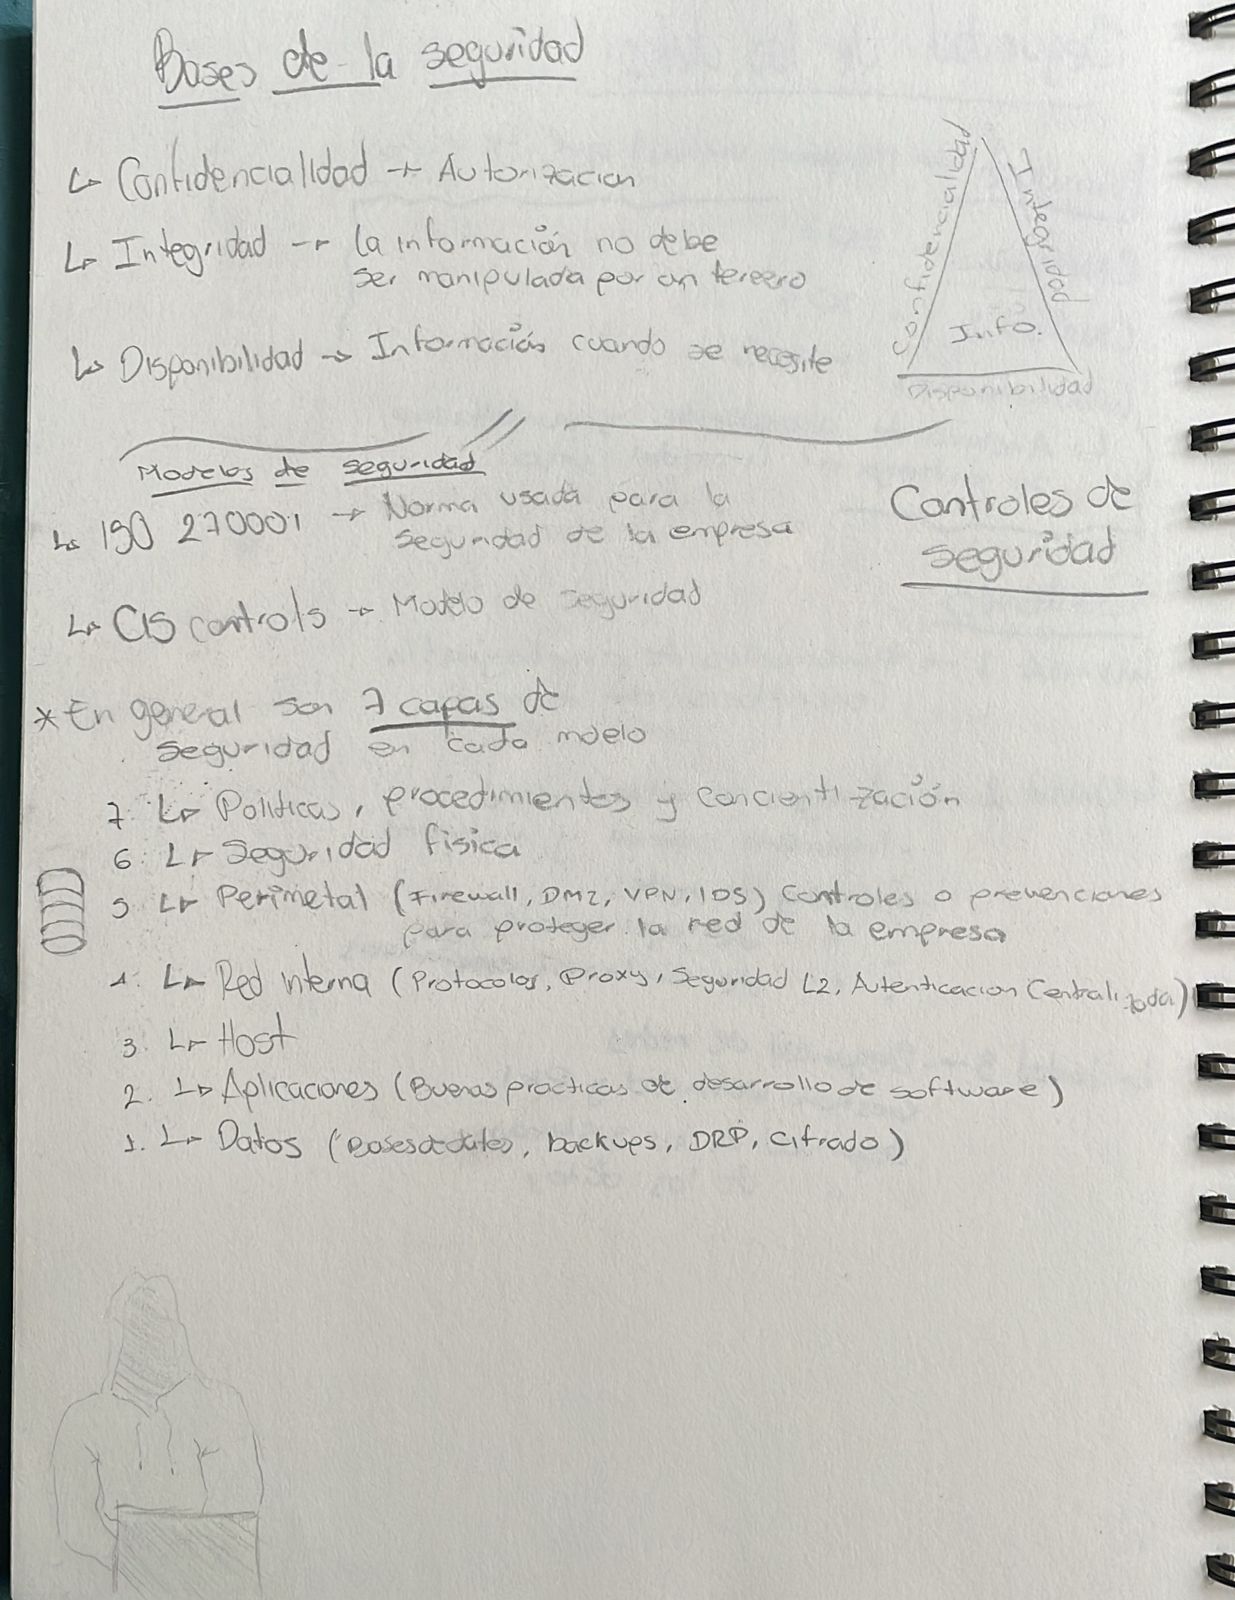 Bases de la seguridad
↳ Confidencialidad → Autorizacion
↳ Integridad → la información no debe
ser manipulada por un tercero
↳ Disponibilidad → Información cuando se necesite
Confidencialidad
Integridad
Info.
Disponibilidad
Modelos de seguridad
↳ ISO 270001 → Norma usada para la
seguridad de la empresa
↳ CIS controls → Modelo de seguridad
Controles de
seguridad
* En general son 7 capas de
seguridad en cada modelo
7. ↳ Politicas, procedimientos y concientización
6. ↳ Seguridad fisica
5. ↳ Perimetal (Firewall, DMZ, VPN, IDS) controles o prevenciones
para proteger la red de la empresa
4. ↳ Red interna (Protocolos, Proxy, Seguridad L2, Autenticacion Centralizada)
3. ↳ Host
2. ↳ Aplicaciones (Buenas practicas de desarrollo de software)
1. ↳ Datos (Bases de dates, backups, DRP, cifrado)